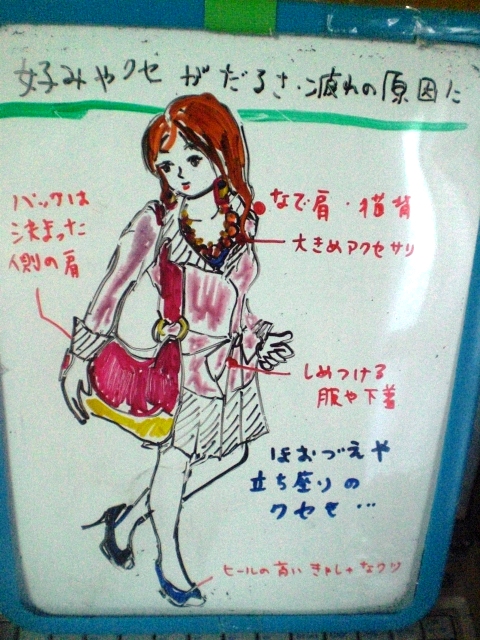 好みやクセがだるさ・疲れの原因に
バックは
決まった
側の肩
なで肩・猫背
大きめアクセサリ
しめつける
服や下着
ほおづえや
立ち座りの
クセも…
ヒールの高いきゃしゃなクツ